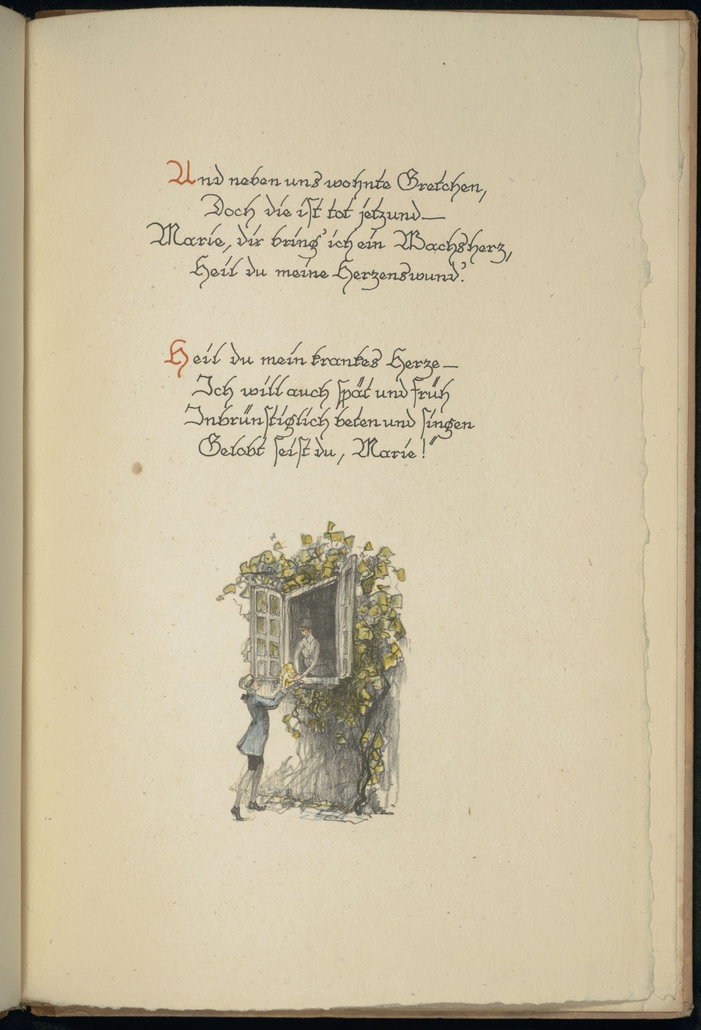 Und neben uns wohnte Gretchen,
Doch die ist tot jetzund—
Marie, dir bring' ich ein Wachsherz,
Heil du meine Herzenswund'.
Heil du mein krankes Herze—
Ich will auch spät und früh
Inbrünstiglich beten und singen
Gelobt seist du, Marie!"